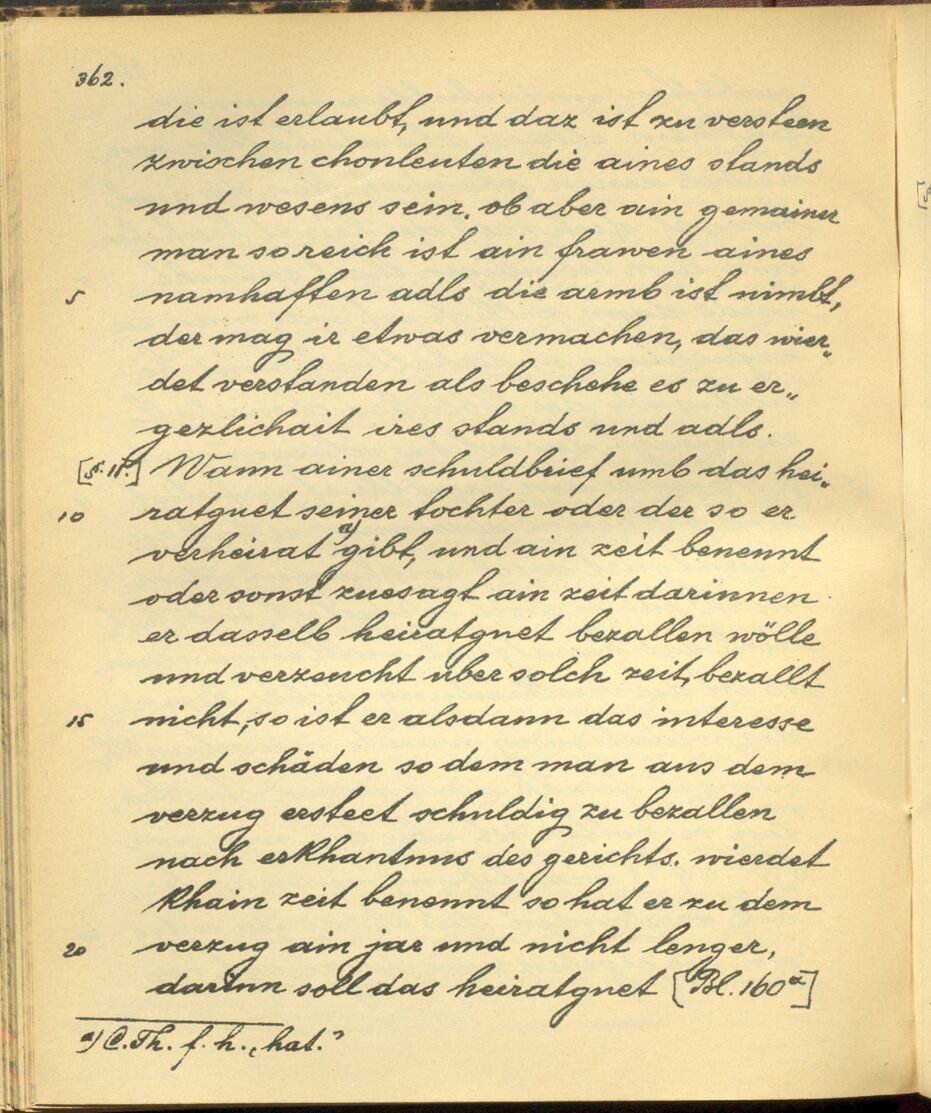 362.
die ist erlaubt, und daz ist zu versteen
zwischen chonleuten die aines stands
und wesens sein. ob aber ain gemainer
man so reich ist ain frawen aines
5 namhaften adls die armb ist nimbt,
der mag ir etwas vermachen, das wier„
det verstanden als beschehe es zu er„
gezlichait ires stands und adls.
[§. 18.] Wann ainer schuldbrief umb das hei„
10 ratguet seiner tochter oder der so er
verheirat a) gibt, und ain zeit benennt
oder sonst zuesagt ain zeit darinnen
er dasselb heiratguet bezallen wölle
und verzeucht uber solch zeit, bezallt
15 nicht, so ist er alsdann das interesse
und schäden so dem man aus dem
verzug ersteet schuldig zu bezallen
nach erkhantnus des gerichts. wierdet
khain zeit benennt so hat er zu dem
20 verzug ain jar und nicht lenger,
darinn soll das heiratguet [Bl. 160a]
a) C. Th. f. h. „hat.“